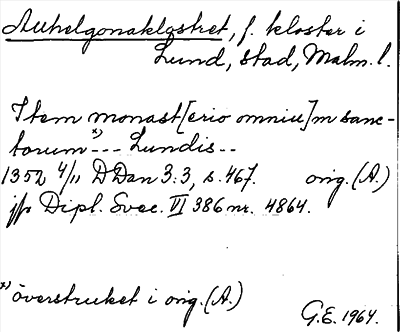 Allhelgonaklostret, f. kloster i
Lund, stad, Malm. l.
Item monast[erio omniu]m sanc-
torum x)--- Lundis--
1352 4/11 DDan 3:3, s. 467. orig. (A.)
jfr Dipl. Svec. VI 386 nr. 4864.
x) överstruket i orig. (A.)
G.E. 1964.